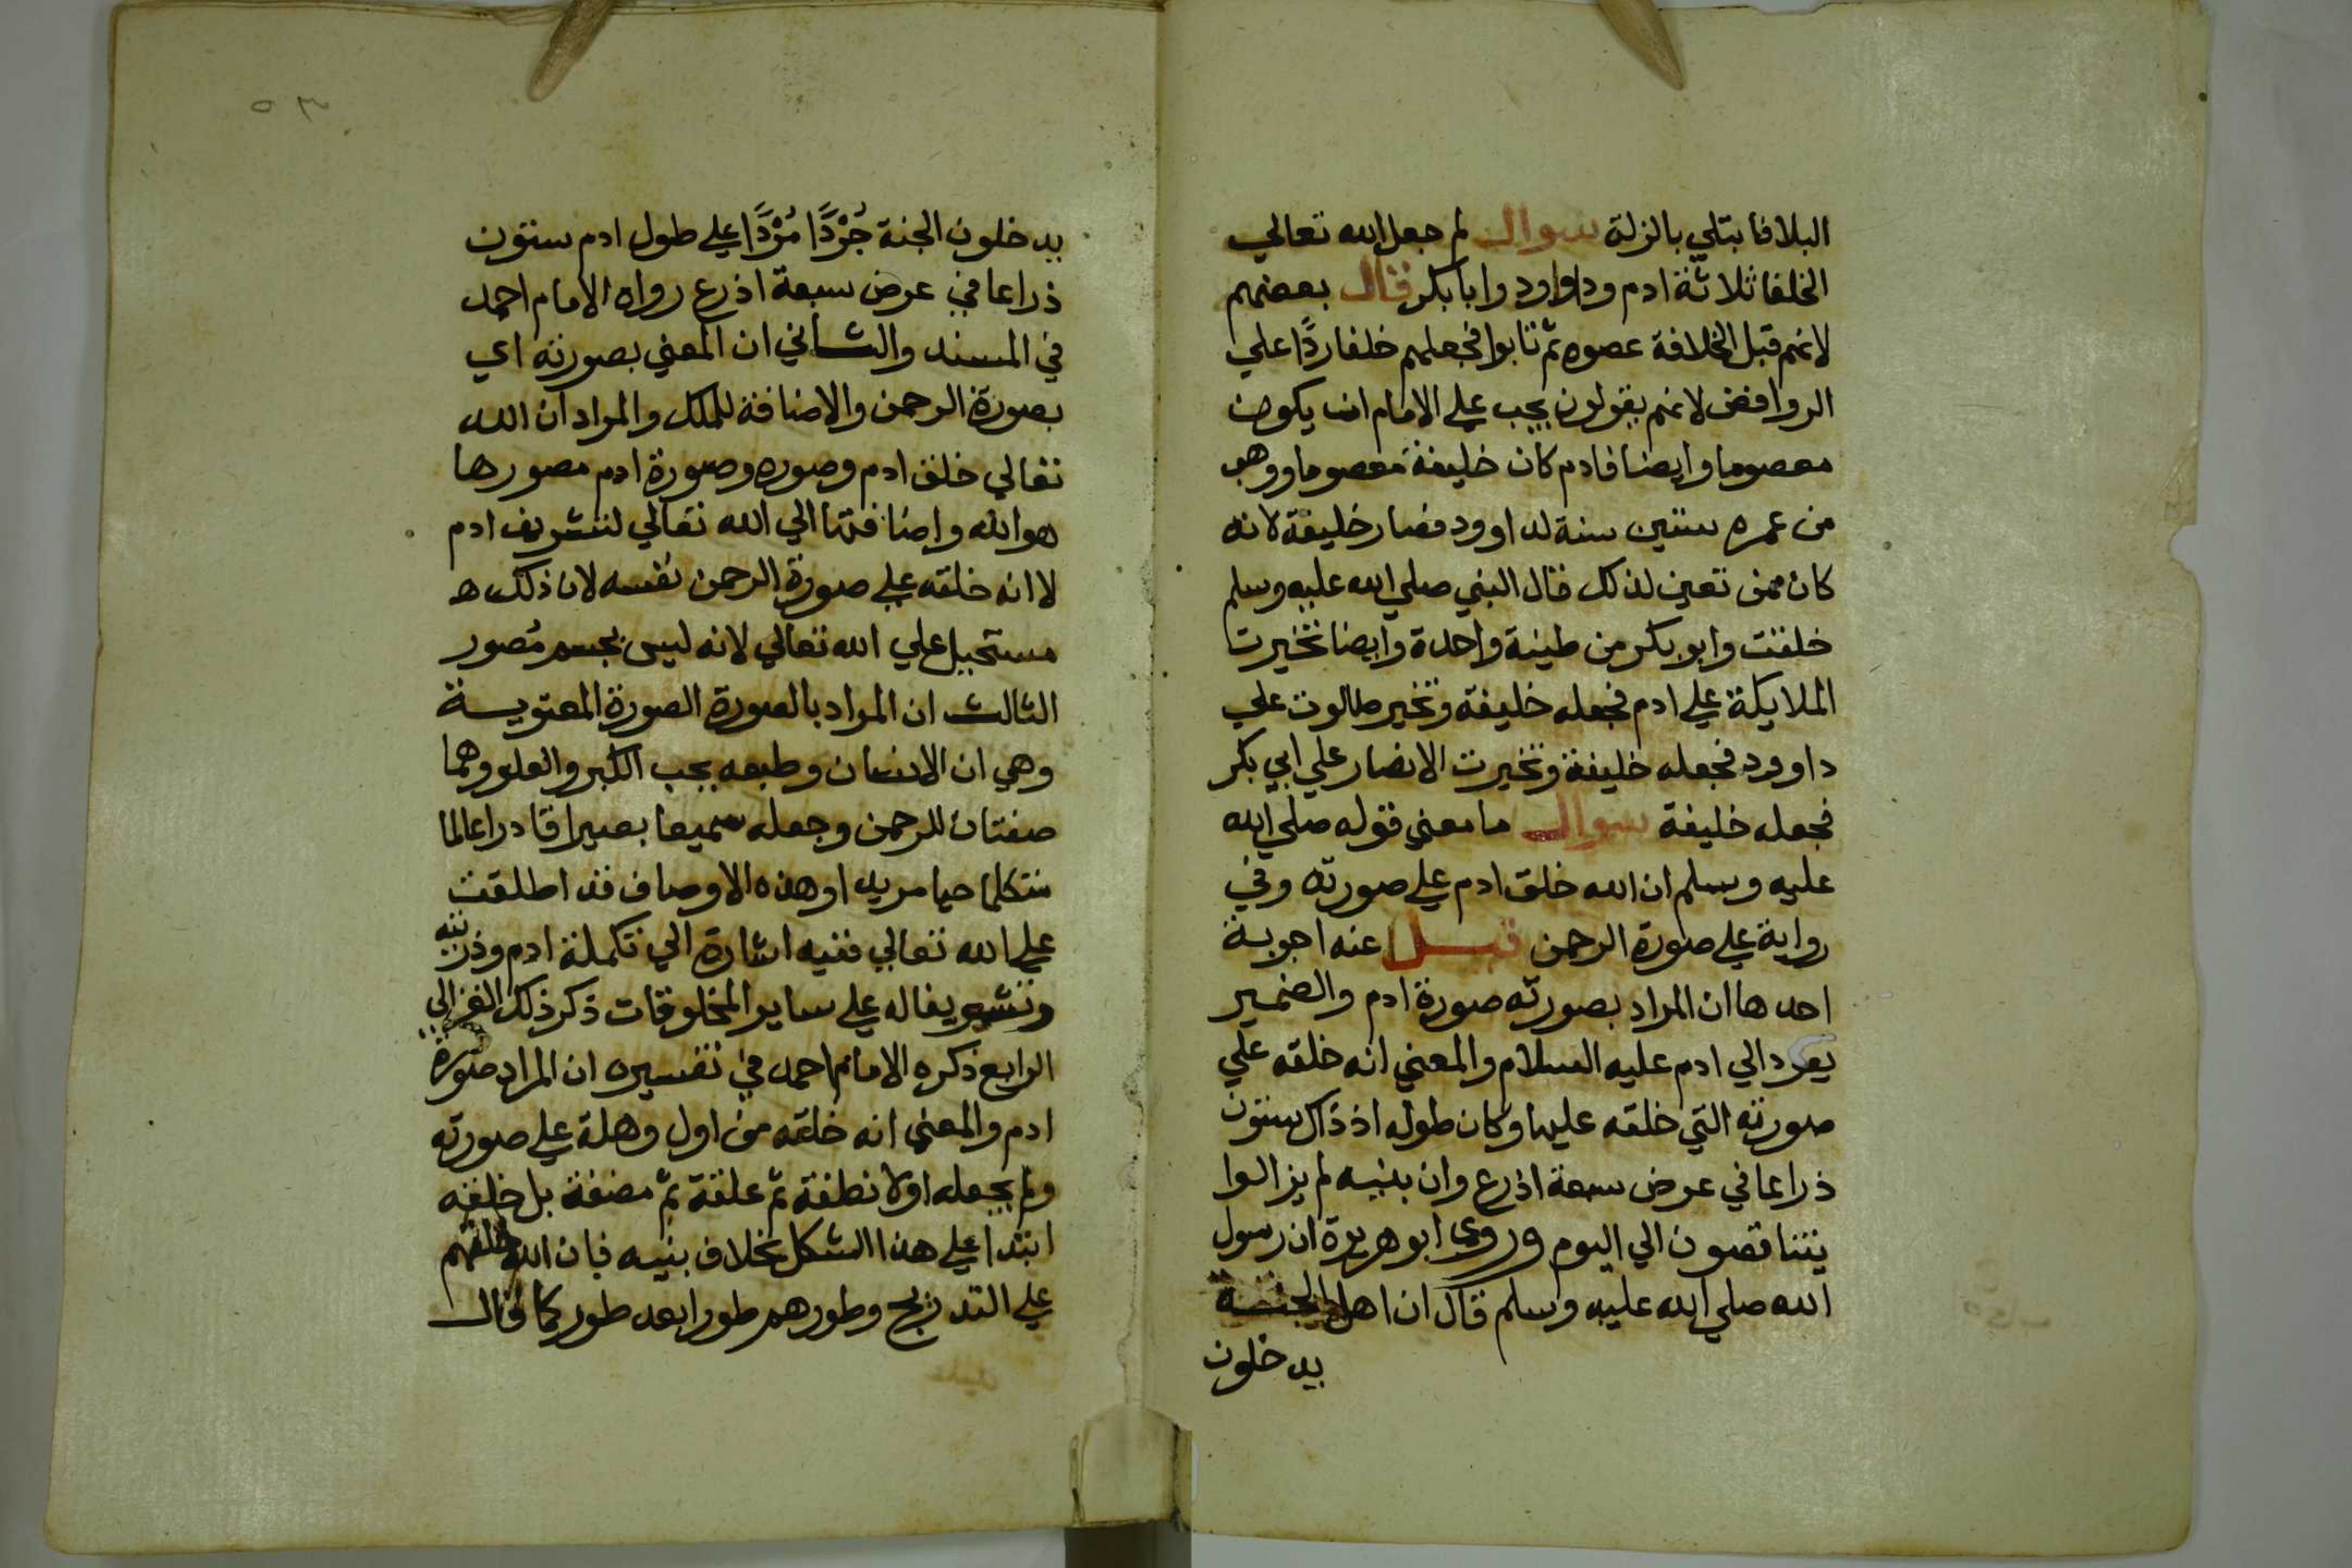 البلا فابتلي بالزلة سوال لم جعل الله تعالي
الخلفا ثلاثة ادم وداوود وابابكر قال بعضهم
لانهم قبل الخلافة عصوه ثم تابوا فجعلهم خلفا ردًا علي
الروافض لانهم يقولون يجب علي الامام ان يكون
معصوما وايضا فادم كان خليفة معصوما ووهب
من عمره ستين سنة لداوود فصار خليفة لانه
كان ممن تعين لذلك قال النبي صلي الله عليه وسلم
خلقت وابو بكر من طينة واحدة وايضا تخيرت
الملايكة علي ادم فجعله خليفة وتخير طالوت علي
داوود فجعله خليفة وتخيرت الانصار علي ابي بكر
فجعله خليفة سوال ما معني قوله صلي الله
عليه وسلم ان الله خلق ادم علي صورته وفي
رواية علي صورة الرحمن قيل عنه اجوبة
احدها ان المراد بصورته صورة ادم والضمير
يعود الي ادم عليه السلام والمعني انه خلقه علي
صورته التي خلقه عليها وكان طوله اذ ذاك ستون
ذراعا في عرض سبعة اذرع وان بنيه لم يزالوا
يتناقصون الي اليوم وروي ابو هريرة ان رسول
الله صلي الله عليه وسلم قال ان اهل الجنة
يدخلون
٥٣
يدخلون الجنة جُرْدًا مُرْدًا علي طول ادم ستون
ذراعا في عرض سبعة اذرع رواه الامام احمد
في المسند والثاني ان المعني بصورته اي
بصورة الرحمن والاضافة للملك والمراد ان الله
تعالي خلق ادم وصوره وصورة ادم مصورها
هو الله واضافتها الي الله تعالي لتشريف ادم
لا انه خلقه علي صورة الرحمن نفسه لان ذلك ه
مستحيل علي الله تعالي لانه ليس بجسم مُصور
الثالث ان المراد بالصورة الصورة المعنوية
وهي ان الانسان وطبعه يحب الكبر والعلو وهما
صفتان للرحمن وجعله سميعا بصيرا قادرا عالما
متكلما حيا مريدا وهذه الاوصاف قد اطلقت
علي الله تعالي ففيه اشارة الي تكملة ادم وذريته
وتشريفا له علي ساير المخلوقات ذكر ذلك الغزالي
الرابع ذكره الامام احمد في تفسيره ان المراد صورة
ادم والمعني انه خلقه من اول وهلة علي صورته
ولم يجعله اولا نطفة ثم علقة ثم مضغة بل خلقه
ابتدا علي هذا الشكل بخلاف بنيه فان الله خلقهم
علي التدريج وطورهم طورا بعد طور كما قال